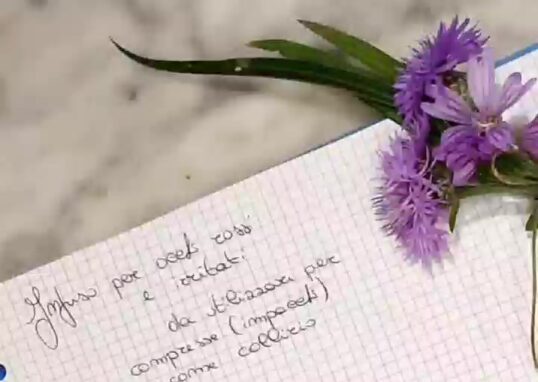 Infuso per occhi rossi
e irritati
da utilizzare per
compresse (impacchi)
come collirio